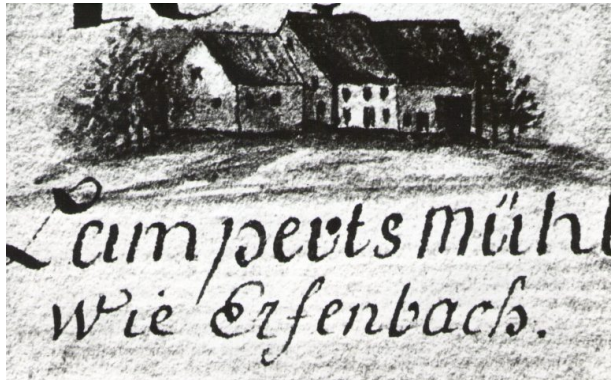 Lampertsmühl
wie Erfenbach.